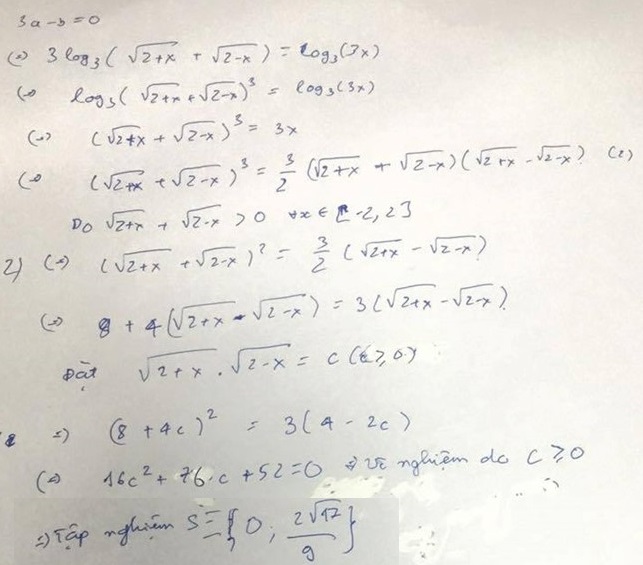 3a - b = 0
(=) 3 log₃(√2+x + √2-x) = log₃(3x)
(=) log₃(√2+x + √2-x)³ = log₃(3x)
(=) (√2+x + √2-x)³ = 3x
(=) (√2+x + √2-x)³ = 3/2 (√2+x + √2-x)(√2+x - √2-x) (2)
Do √2+x + √2-x > 0 ∀x ∈ [-2, 2]
2) (=) (√2+x + √2-x)² = 3/2 (√2+x - √2-x)
(=) 8 + 4(√2+x . √2-x) = 3(√2+x - √2-x)
Đặt √2+x . √2-x = c (c ≥ 0)
=) (8 + 4c)² = 3(4 - 2c)
(=) 16c² + 76.c + 52 = 0 => vô nghiệm do c ≥ 0
=) Tập nghiệm S = {0; 2√17/9}